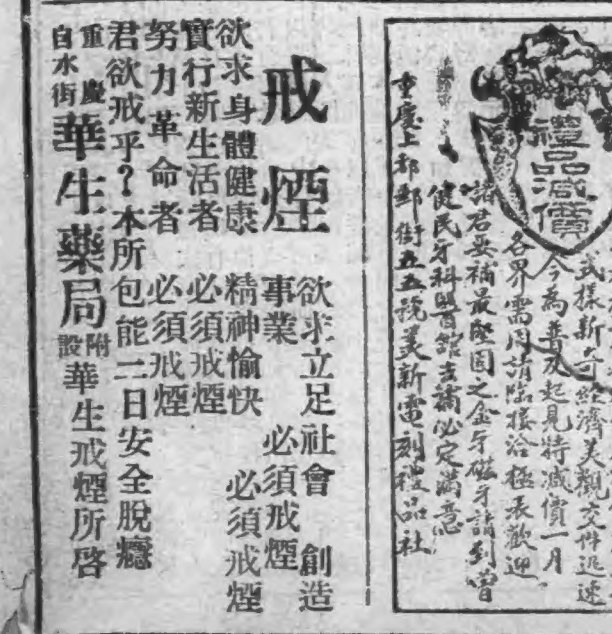 禮品減價
式樣新奇經濟美觀交件迅速
今為普及起見特減價一月
各界需用請臨接洽極表歡迎
諸君要補最堅固之金牙磁牙請到曾
健民牙科醫館去補必定滿意
重慶上都郵街五五號美新電刻禮品社
戒煙
欲求立足社會 創造
事業 必須戒煙
欲求身體健康 精神愉快 必須戒煙
實行新生活者 必須戒煙
努力革命者 必須戒煙
君欲戒乎？本所包能二日安全脫癮
重慶白水街 華生藥局 附設 華生戒煙所啓